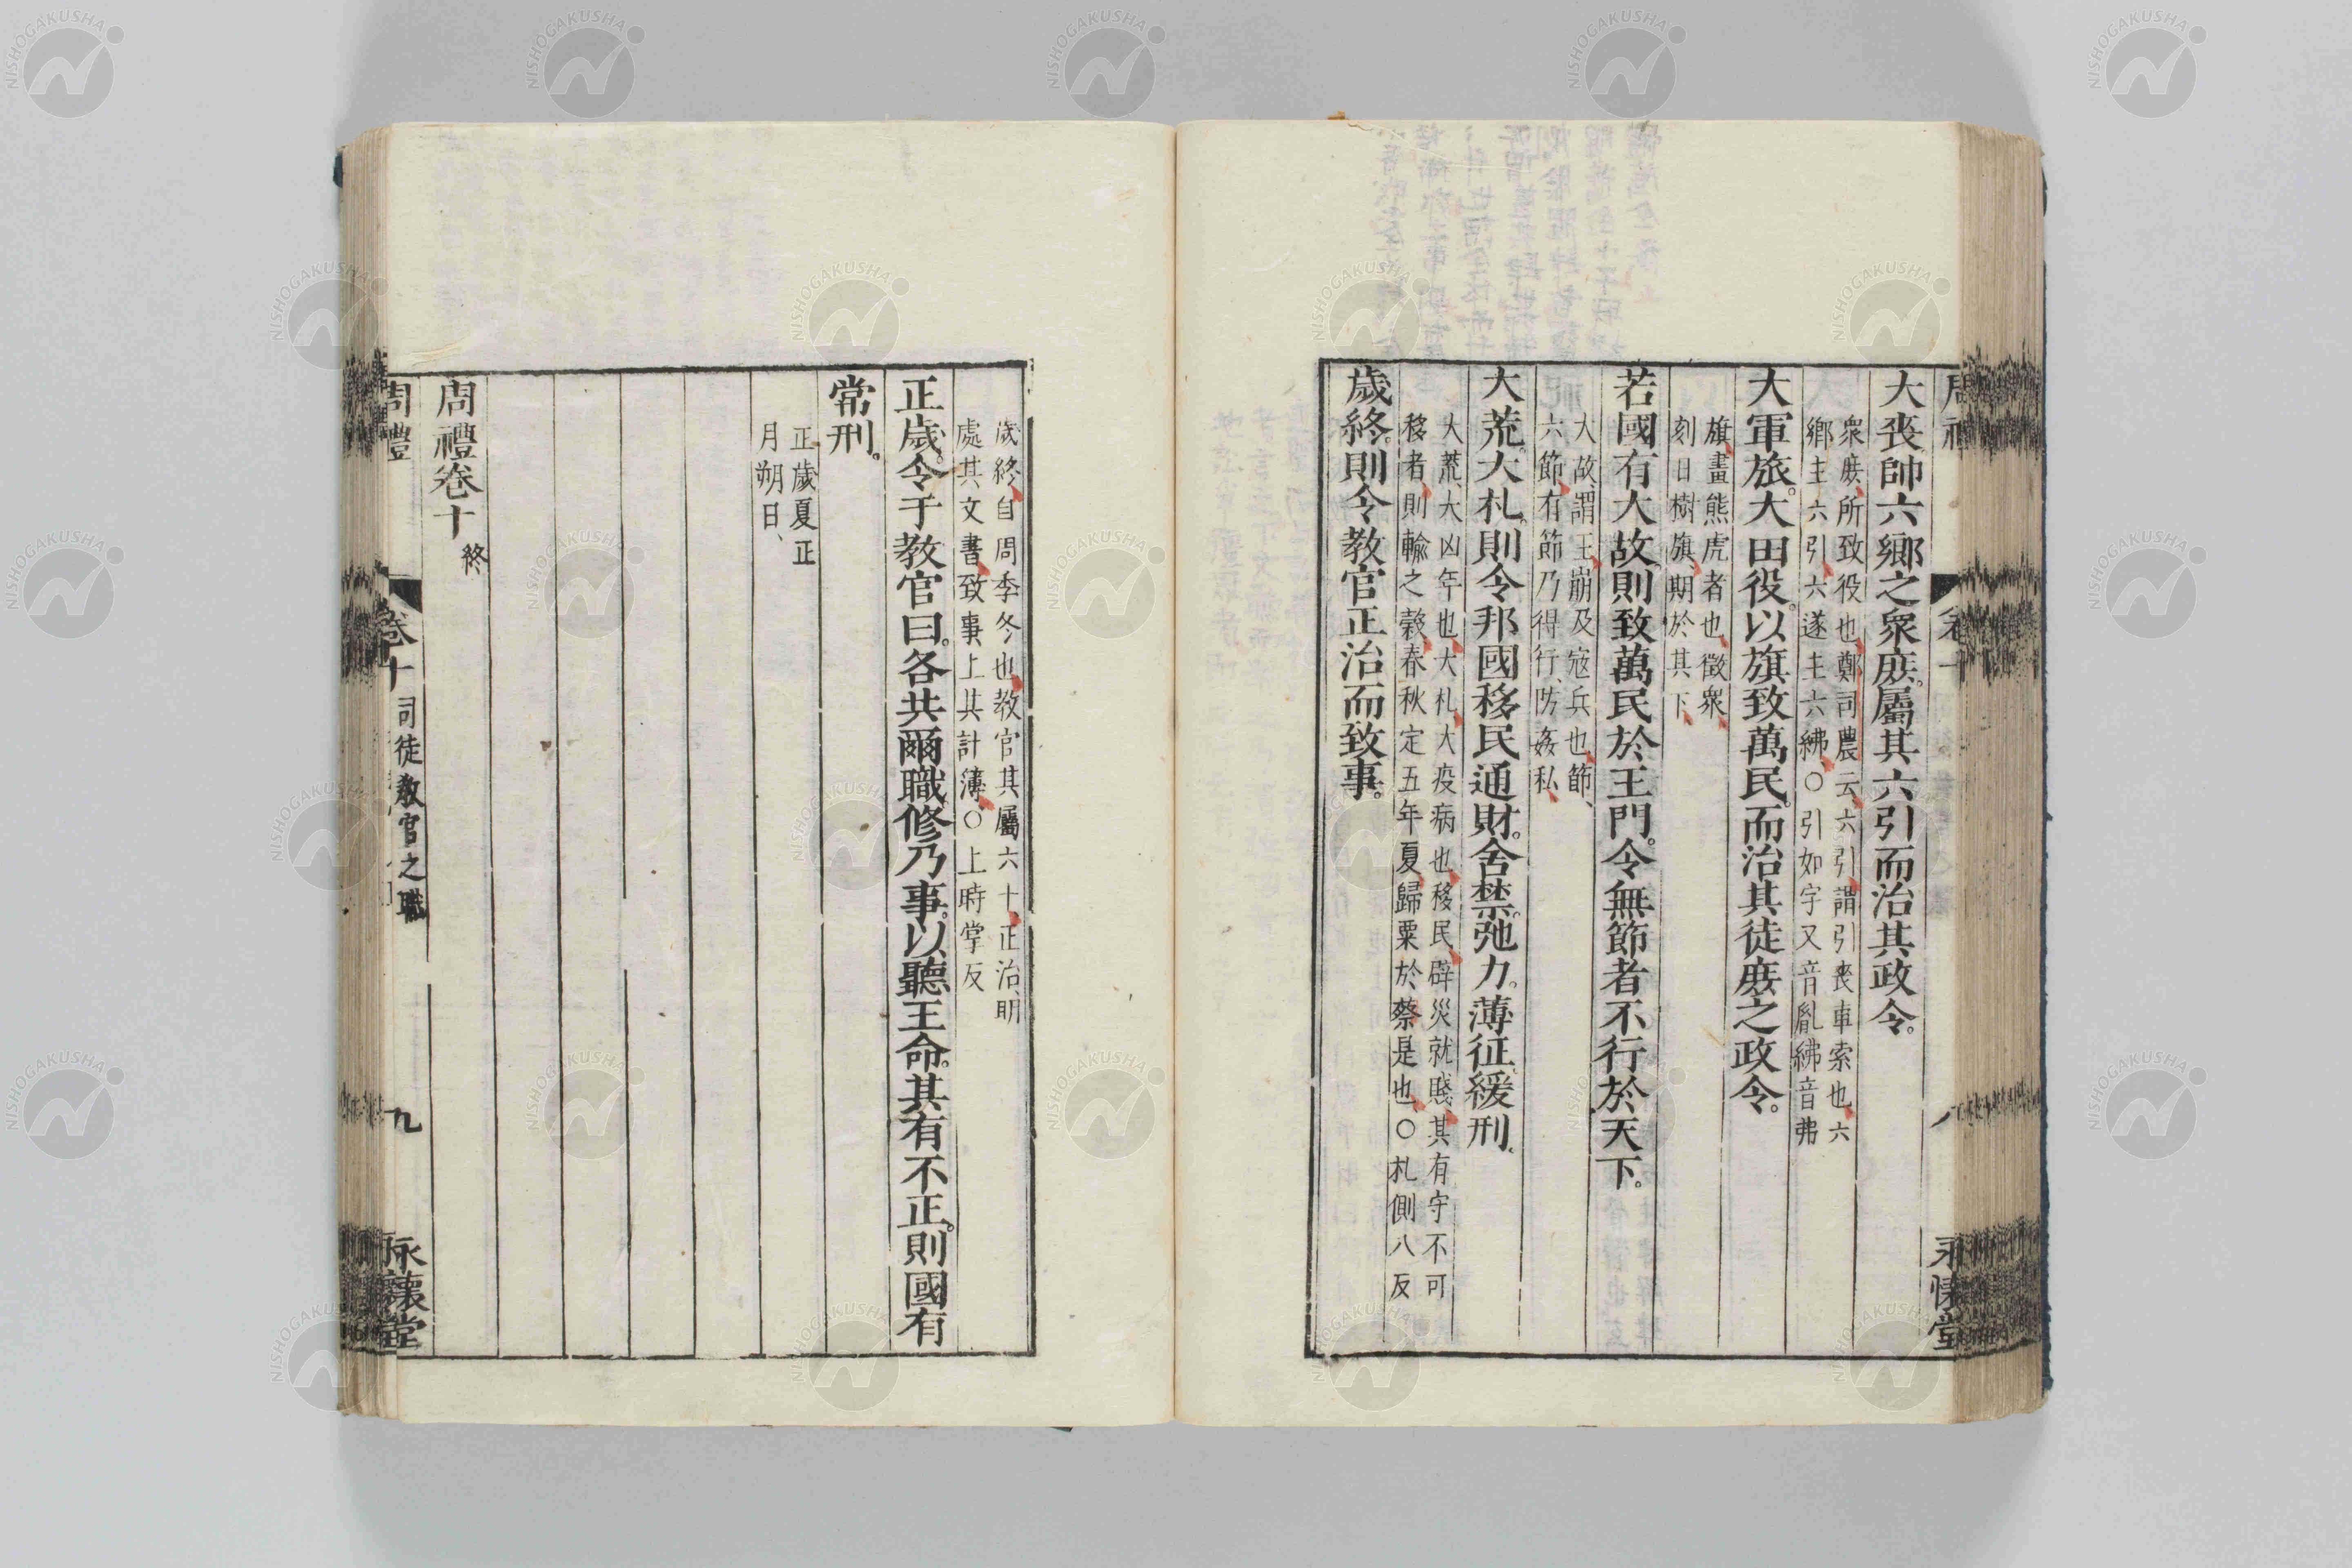 大喪帥六鄉之衆庶。屬其六引而治其政令。
衆庶、所致役也、鄭司農云、六引、謂引喪車索也、六
鄉主六引、六遂主六紼、〇引如字又音胤紼音弗
大軍旅。大田役。以旗致萬民。而治其徒庶之政令。
旗、畫熊虎者也、徵衆、
刻日樹旗、期於其下、
若國有大故、則致萬民於王門。令無節者不行於天下。
大故、謂王崩及寇兵也、節、
六節、有節乃得行、防姦私、
大荒。大札。則令邦國移民通財。舍禁。弛力。薄征。緩刑。
大荒、大凶年也、大札、大疫病也、移民、辟災就賤、其有守不可
移者、則輸之穀、春秋定五年夏、歸粟於蔡、是也、〇札側八反
歲終。則令教官正治而致事。
周禮
卷十
八
永懷堂
歲終、自周季冬也、教官其屬六十、正治、明
處其文書、致事上其計簿、〇上時掌反
正歲。令于教官曰。各共爾職。修乃事。以聽王命。其有不正。則國有
常刑。
正歲夏正
月朔日、
周禮卷十 終
周禮
卷十 司徒教官之職
九
永懷堂
NISHOGAKUSHA